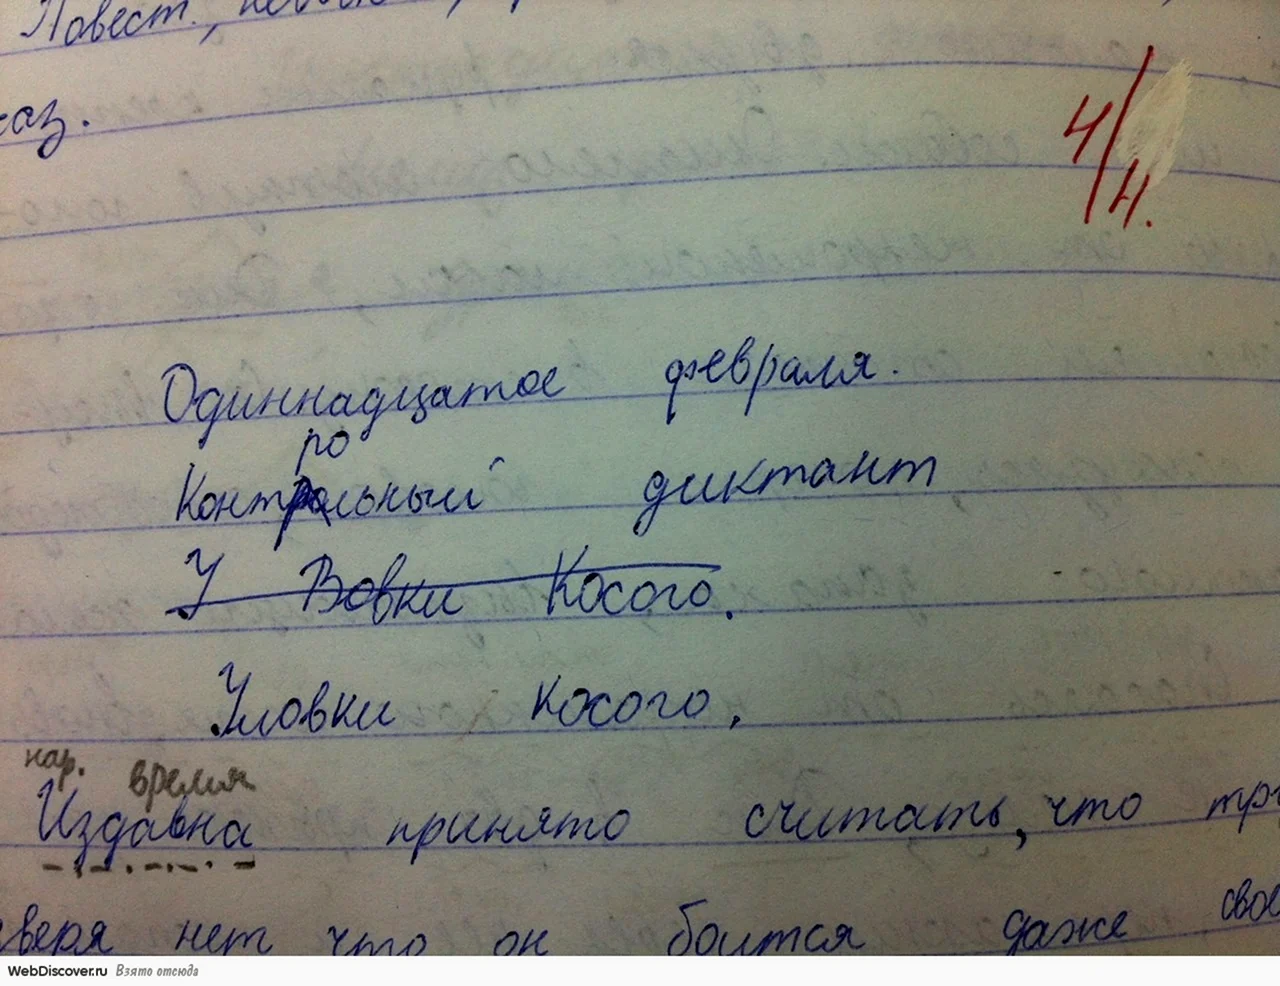 Повест.,
каз.
4/4.
Одиннадцатое февраля.
ро
Контрольный диктант
У Вовки Косого.
Уловки косого.
нар. время
Издавна принято считать, что
зверя нет что он боится даже свое
WebDiscover.ru Взято отсюда